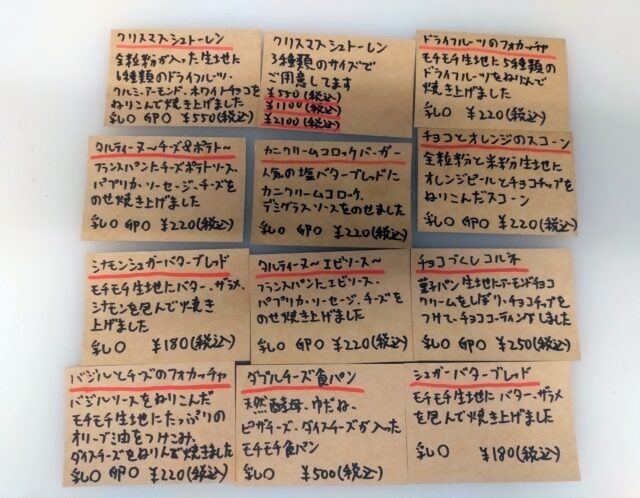 クリスマスシュトーレン
全粒粉が入った生地に
6種類のドライフルーツ・
クルミ・アーモンド、ホワイトチョコを
ねりこんで焼き上げました
乳〇 卵〇 ¥550(税込)
クリスマスシュトーレン
3種類のサイズで
ご用意してます
¥550(税込)
¥1100(税込)
¥2100(税込)
ドライフルーツのフォカッチャ
モチモチ生地に5種類の
ドライフルーツをねりこんで
焼き上げました
乳〇 卵〇 ¥220(税込)
タルティーヌ〜チーズ&ポテト〜
フランスパンにチーズポテトソース、
パプリカ・ソーセージ・チーズを
のせ焼き上げました
乳〇 卵〇 ¥220(税込)
カニクリームコロッケバーガー
人気の塩バターブレッドに
カニクリームコロッケ、
デミグラスソースをのせました
乳〇 卵〇 ¥220(税込)
チョコとオレンジのスコーン
全粒粉と米粉生地に
オレンジピールとチョコチップを
ねりこんだスコーン
乳〇 卵〇 ¥220(税込)
シナモンシュガーバターブレッド
モチモチ生地にバター、ザラメ、
シナモンを包んで焼き
上げました
乳〇 ¥180(税込)
タルティーヌ〜エビソース〜
フランスパンにエビソース、
パプリカ・ソーセージ、チーズを
のせ焼き上げました
乳〇 卵〇 ¥220(税込)
チョコづくしコルネ
菓子パン生地にアーモンドチョコ
クリームをしぼり・チョコチップを
つけて、チョココーティングしました
乳〇 卵〇 ¥250(税込)
バジルとチーズのフォカッチャ
バジルソースをねりこんだ
モチモチ生地にたっぷりの
オリーブ油をつけこみ、
ダイスチーズをねりんで焼きました
乳〇 卵〇 ¥220(税込)
ダブルチーズ食パン
天然酵母、ゆだね、
ピザチーズ・ダイスチーズが入った
モチモチ食パン
乳〇 ¥500(税込)
シュガーバターブレッド
モチモチ生地にバター、ザラメ
を包んで焼き上げました
乳〇 ¥180(税込)